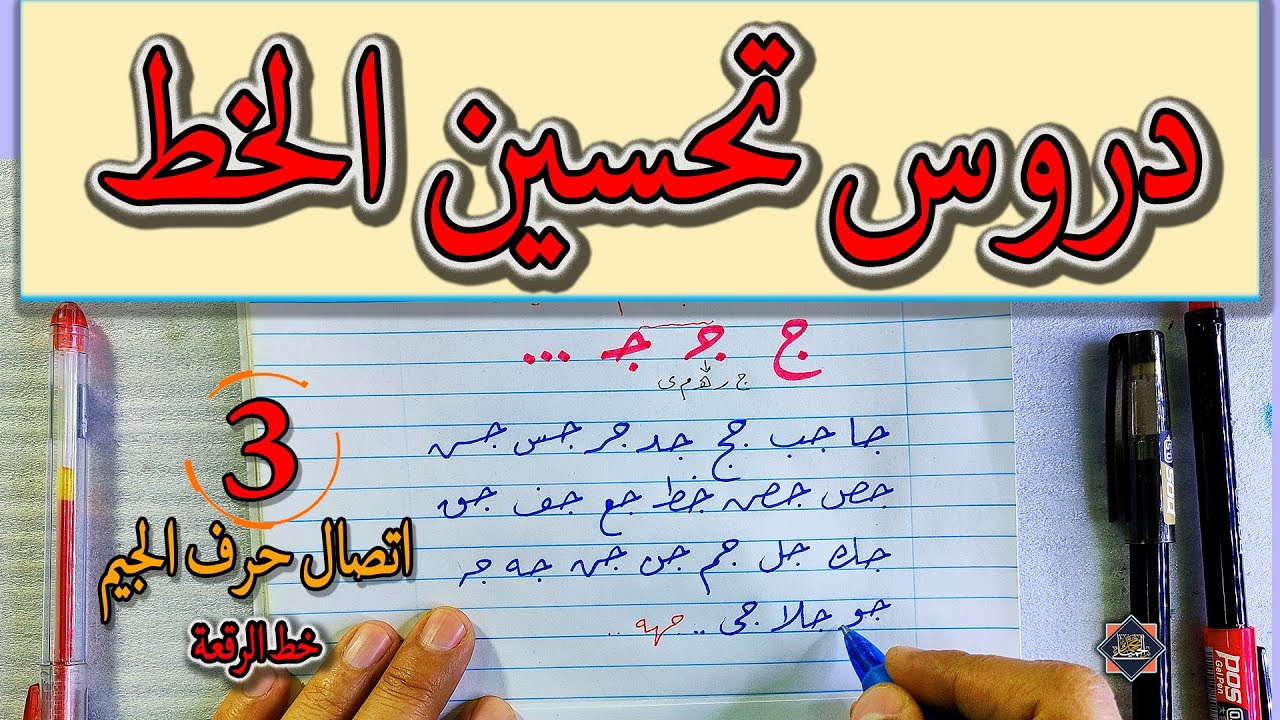 دروس تحسين الخط
ج جـ جـ ...
ج ر هـ م ى
جا جب جج جد جر جس جس
جص جص جط جع جف جق
جك جل جم جن جن جه جه
جو جلا جى .. جهه ..
3
اتصال حرف الجيم
خط الرقعة
POS
Gel Pen